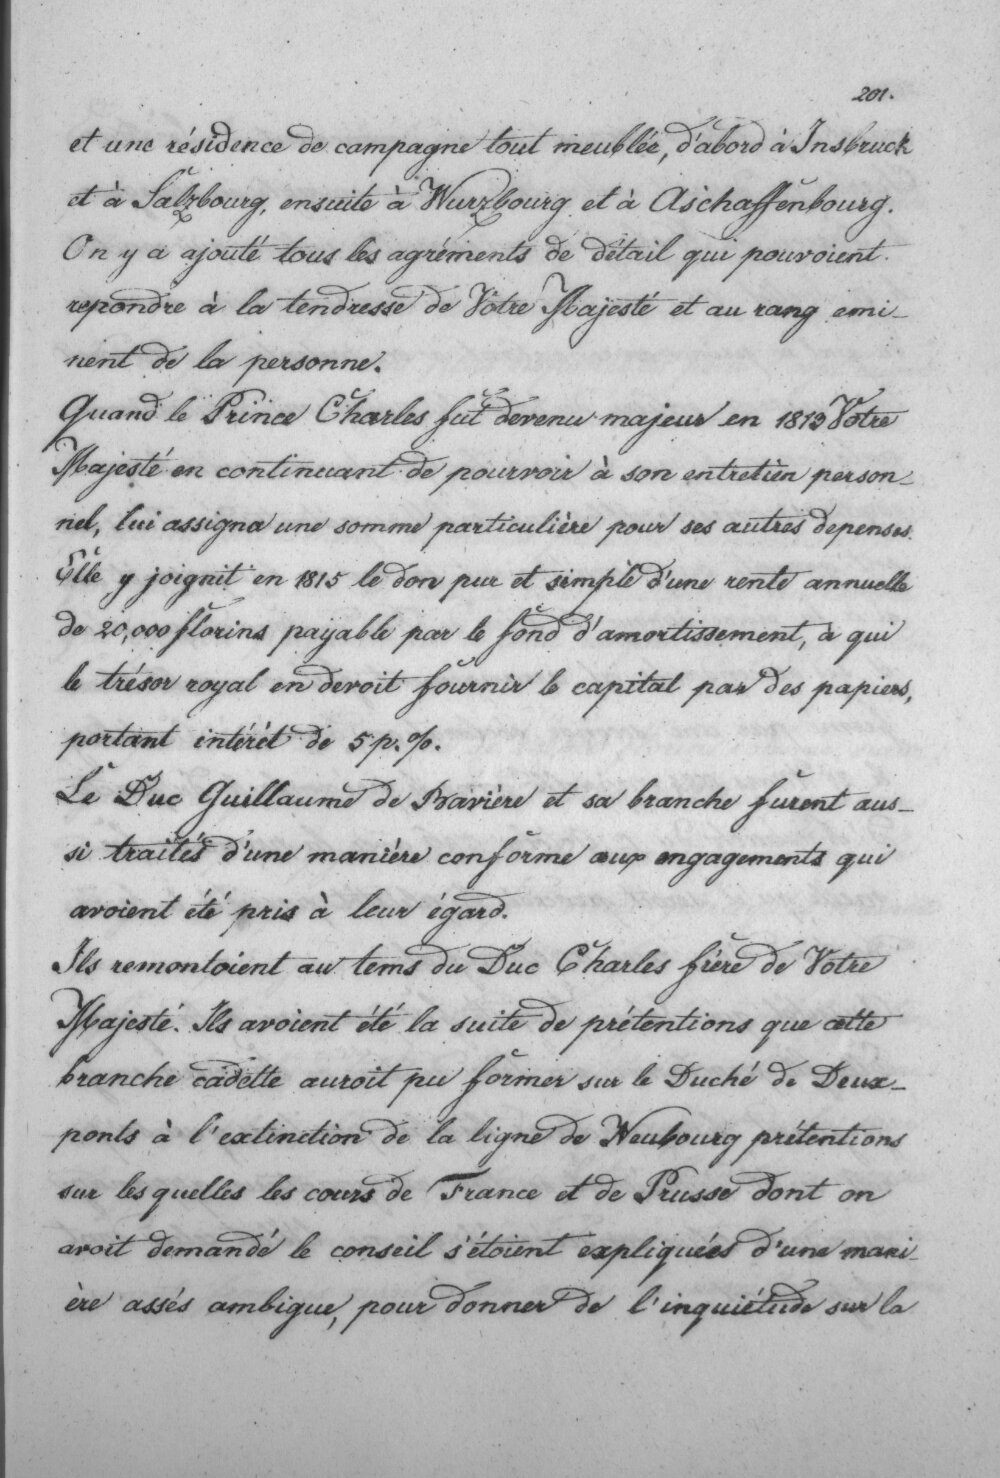 201.
et une résidence de campagne tout meublée, d'abord à Insbruck
et à Salzbourg, ensuite à Wurzbourg et à Aschaffenbourg.
On y a ajouté tous les agréments de détail qui pouvoient
repondre à la tendresse de Votre Majesté et au rang emi-
nent de la personne.
Quand le Prince Charles fut devenu majeur en 1813 Votre
Majesté en continuant de pourvoir à son entretien person-
nel, lui assigna une somme particulière pour ses autres depenses.
Elle y joignit en 1815 le don pur et simple d'une rente annuelle
de 20,000 florins payable par le fond d'amortissement, à qui
le trésor royal en devoit fournir le capital par des papiers,
portant intérêt de 5 p. %.
Le Duc Guillaume de Bavière et sa branche furent aus-
si traités d'une manière conforme aux engagements qui
avoient été pris à leur égard.
Ils remontoient au tems du Duc Charles frère de Votre
Majesté. Ils avoient été la suite de prétentions que cette
branche cadette auroit pu former sur le Duché de Deux-
ponts à l'extinction de la ligne de Neubourg prétentions
sur les quelles les cours de France et de Prusse dont on
avoit demandé le conseil s'étoient expliquées d'une mani-
ère assés ambigue, pour donner de l'inquiétude sur la